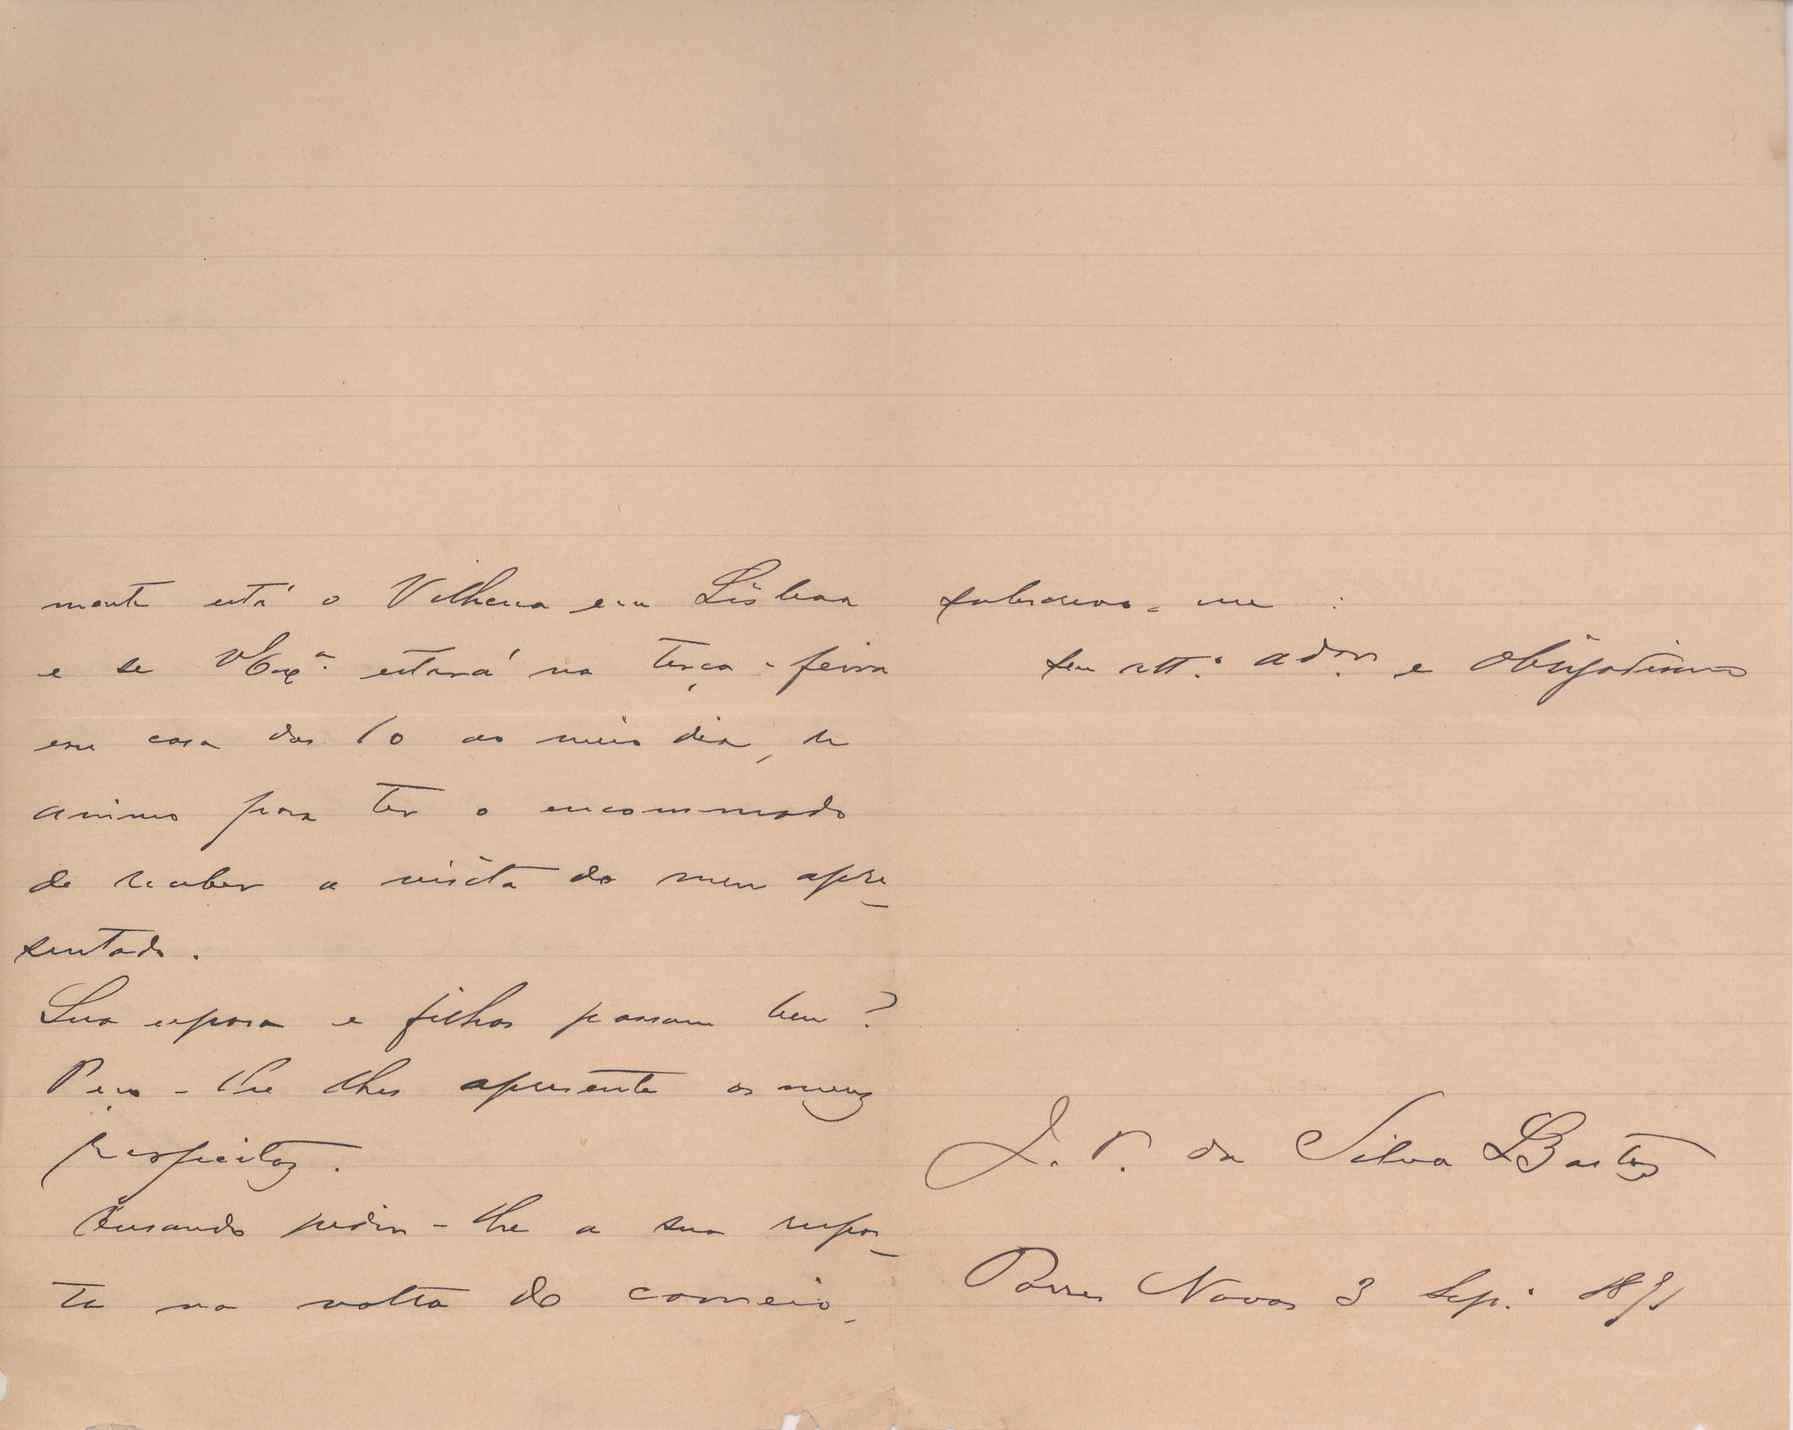 mente está o Vilhena em Lisboa
e se VExª. estará na terça-feira
em casa das 10 ao meio dia, de
animo para ter o encommodo
de receber a visita do meu apre-
sentado.
Sua esposa e filhos passam bem?
Peço-lhe lhes apresente os meus
respeitos.
Ousando pedir-lhe a sua respos-
ta na volta do correio,
subscrevo-me :
seu attº. adorº. e obrigadissimo
J. P. da Silva Bastos
Torres Novas 3 Sepº. 1891